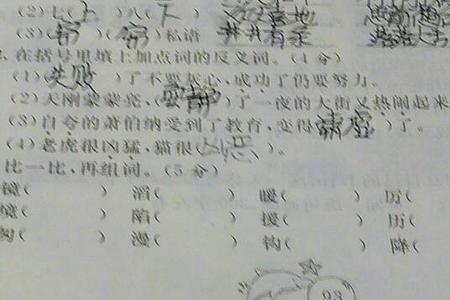 (2)七(上)八(下)
(3)(窃)(窃)私语 井井有条
在括号里填上加点词的反义词。(4分)
(1)(失败)了不要灰心,成功了仍要努力。
(2)天刚蒙蒙亮,( )了一夜的大街又热闹起来
(3)自夸的萧伯纳受到了教育,变得( )了。
(4)老虎很凶猛,猫很( )。
比一比,再组词。(5分)
镜( ) 滔( ) 暖( ) 厉( )
境( ) 陷( ) 援( ) 历( )
( ) 漫( ) 钩( ) 降(
93